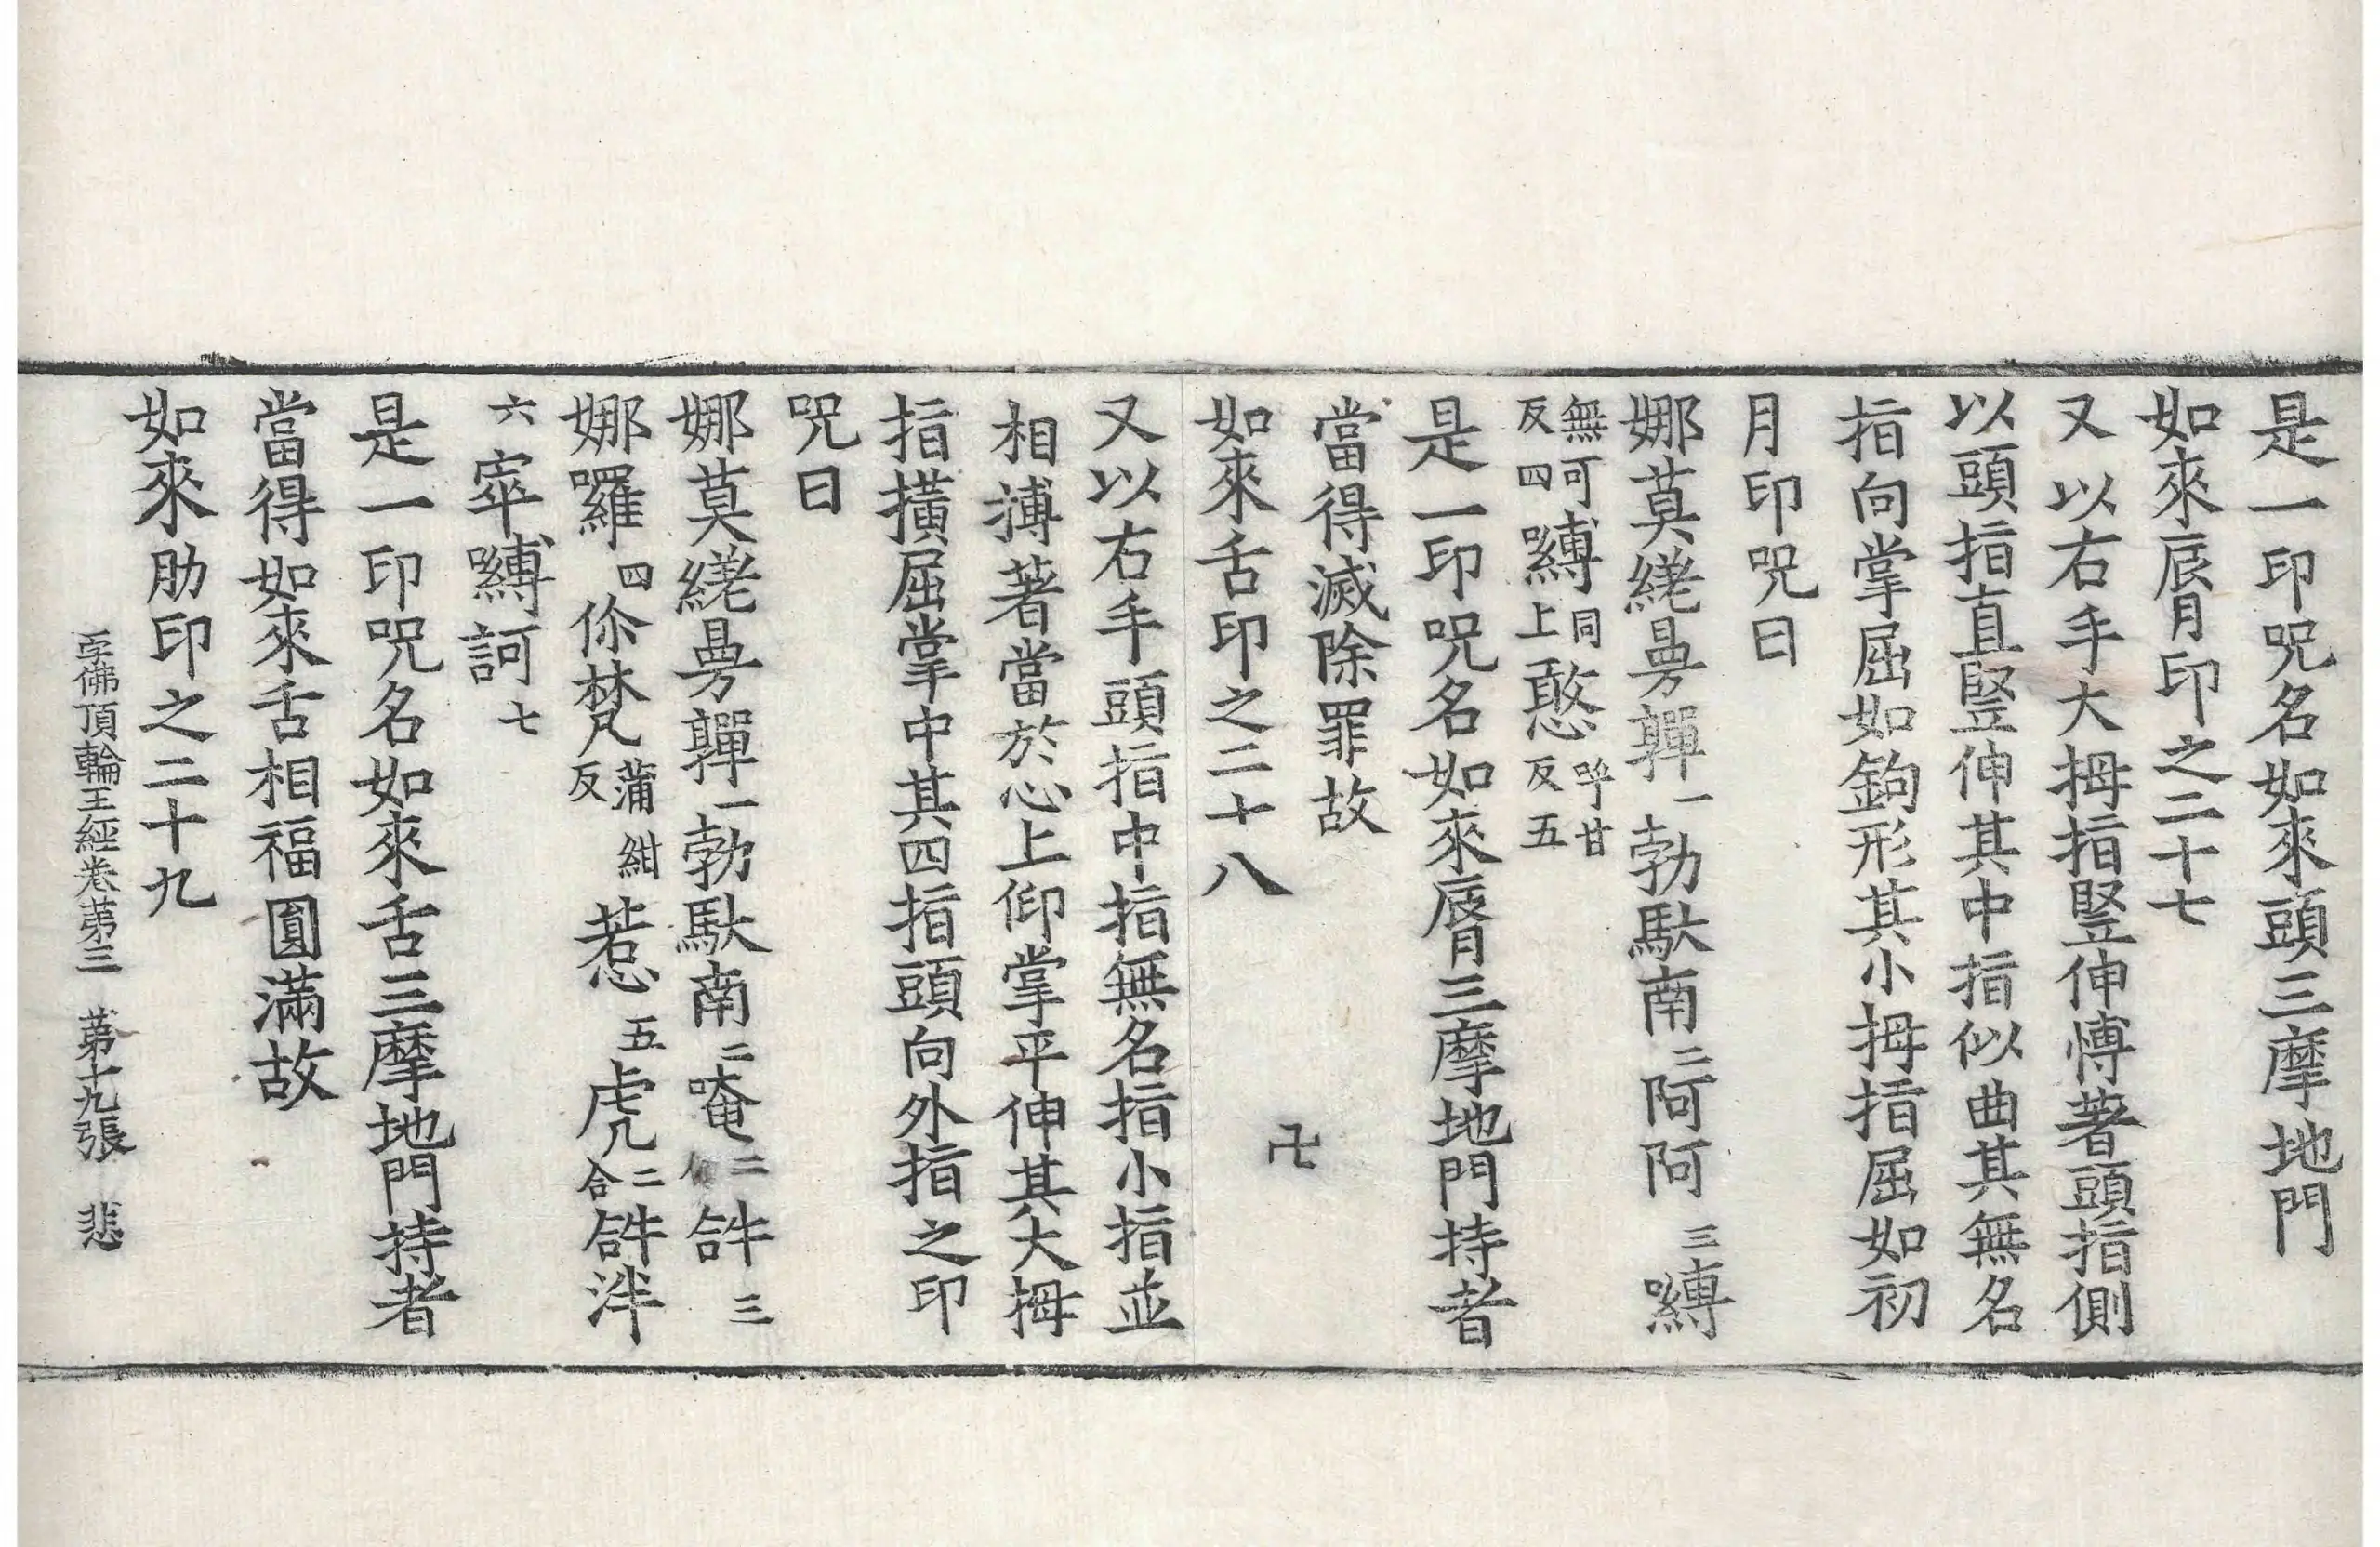 是一印呪名如來頭三摩地門
如來脣印之二十七
又以右手大拇指竪伸愽著頭指側
以頭指直竪伸其中指似曲其無名
指向掌屈如鉤形其小拇指屈如初
月印呪曰
娜莫繞㬅嚲一勃馱南二阿阿三嚩
無可反四嚩上同憨呼甘反五
是一印呪名如來脣三摩地門持者
當得滅除罪故
如來舌印之二十八
卍
又以右手頭指中指無名指小指並
相搏著當於心上仰掌平伸其大拇
指橫屈掌中其四指頭向外指之印
呪曰
娜莫繞㬅嚲一勃馱南二唵二𤙖三
娜囉四你梵蒲紺反惹五虎二合𤙖泮
六窣嚩訶七
是一印呪名如來舌三摩地門持者
當得如來舌相福圓滿故
如來肋印之二十九
字佛頂輪王經卷第三 第十九張 悲